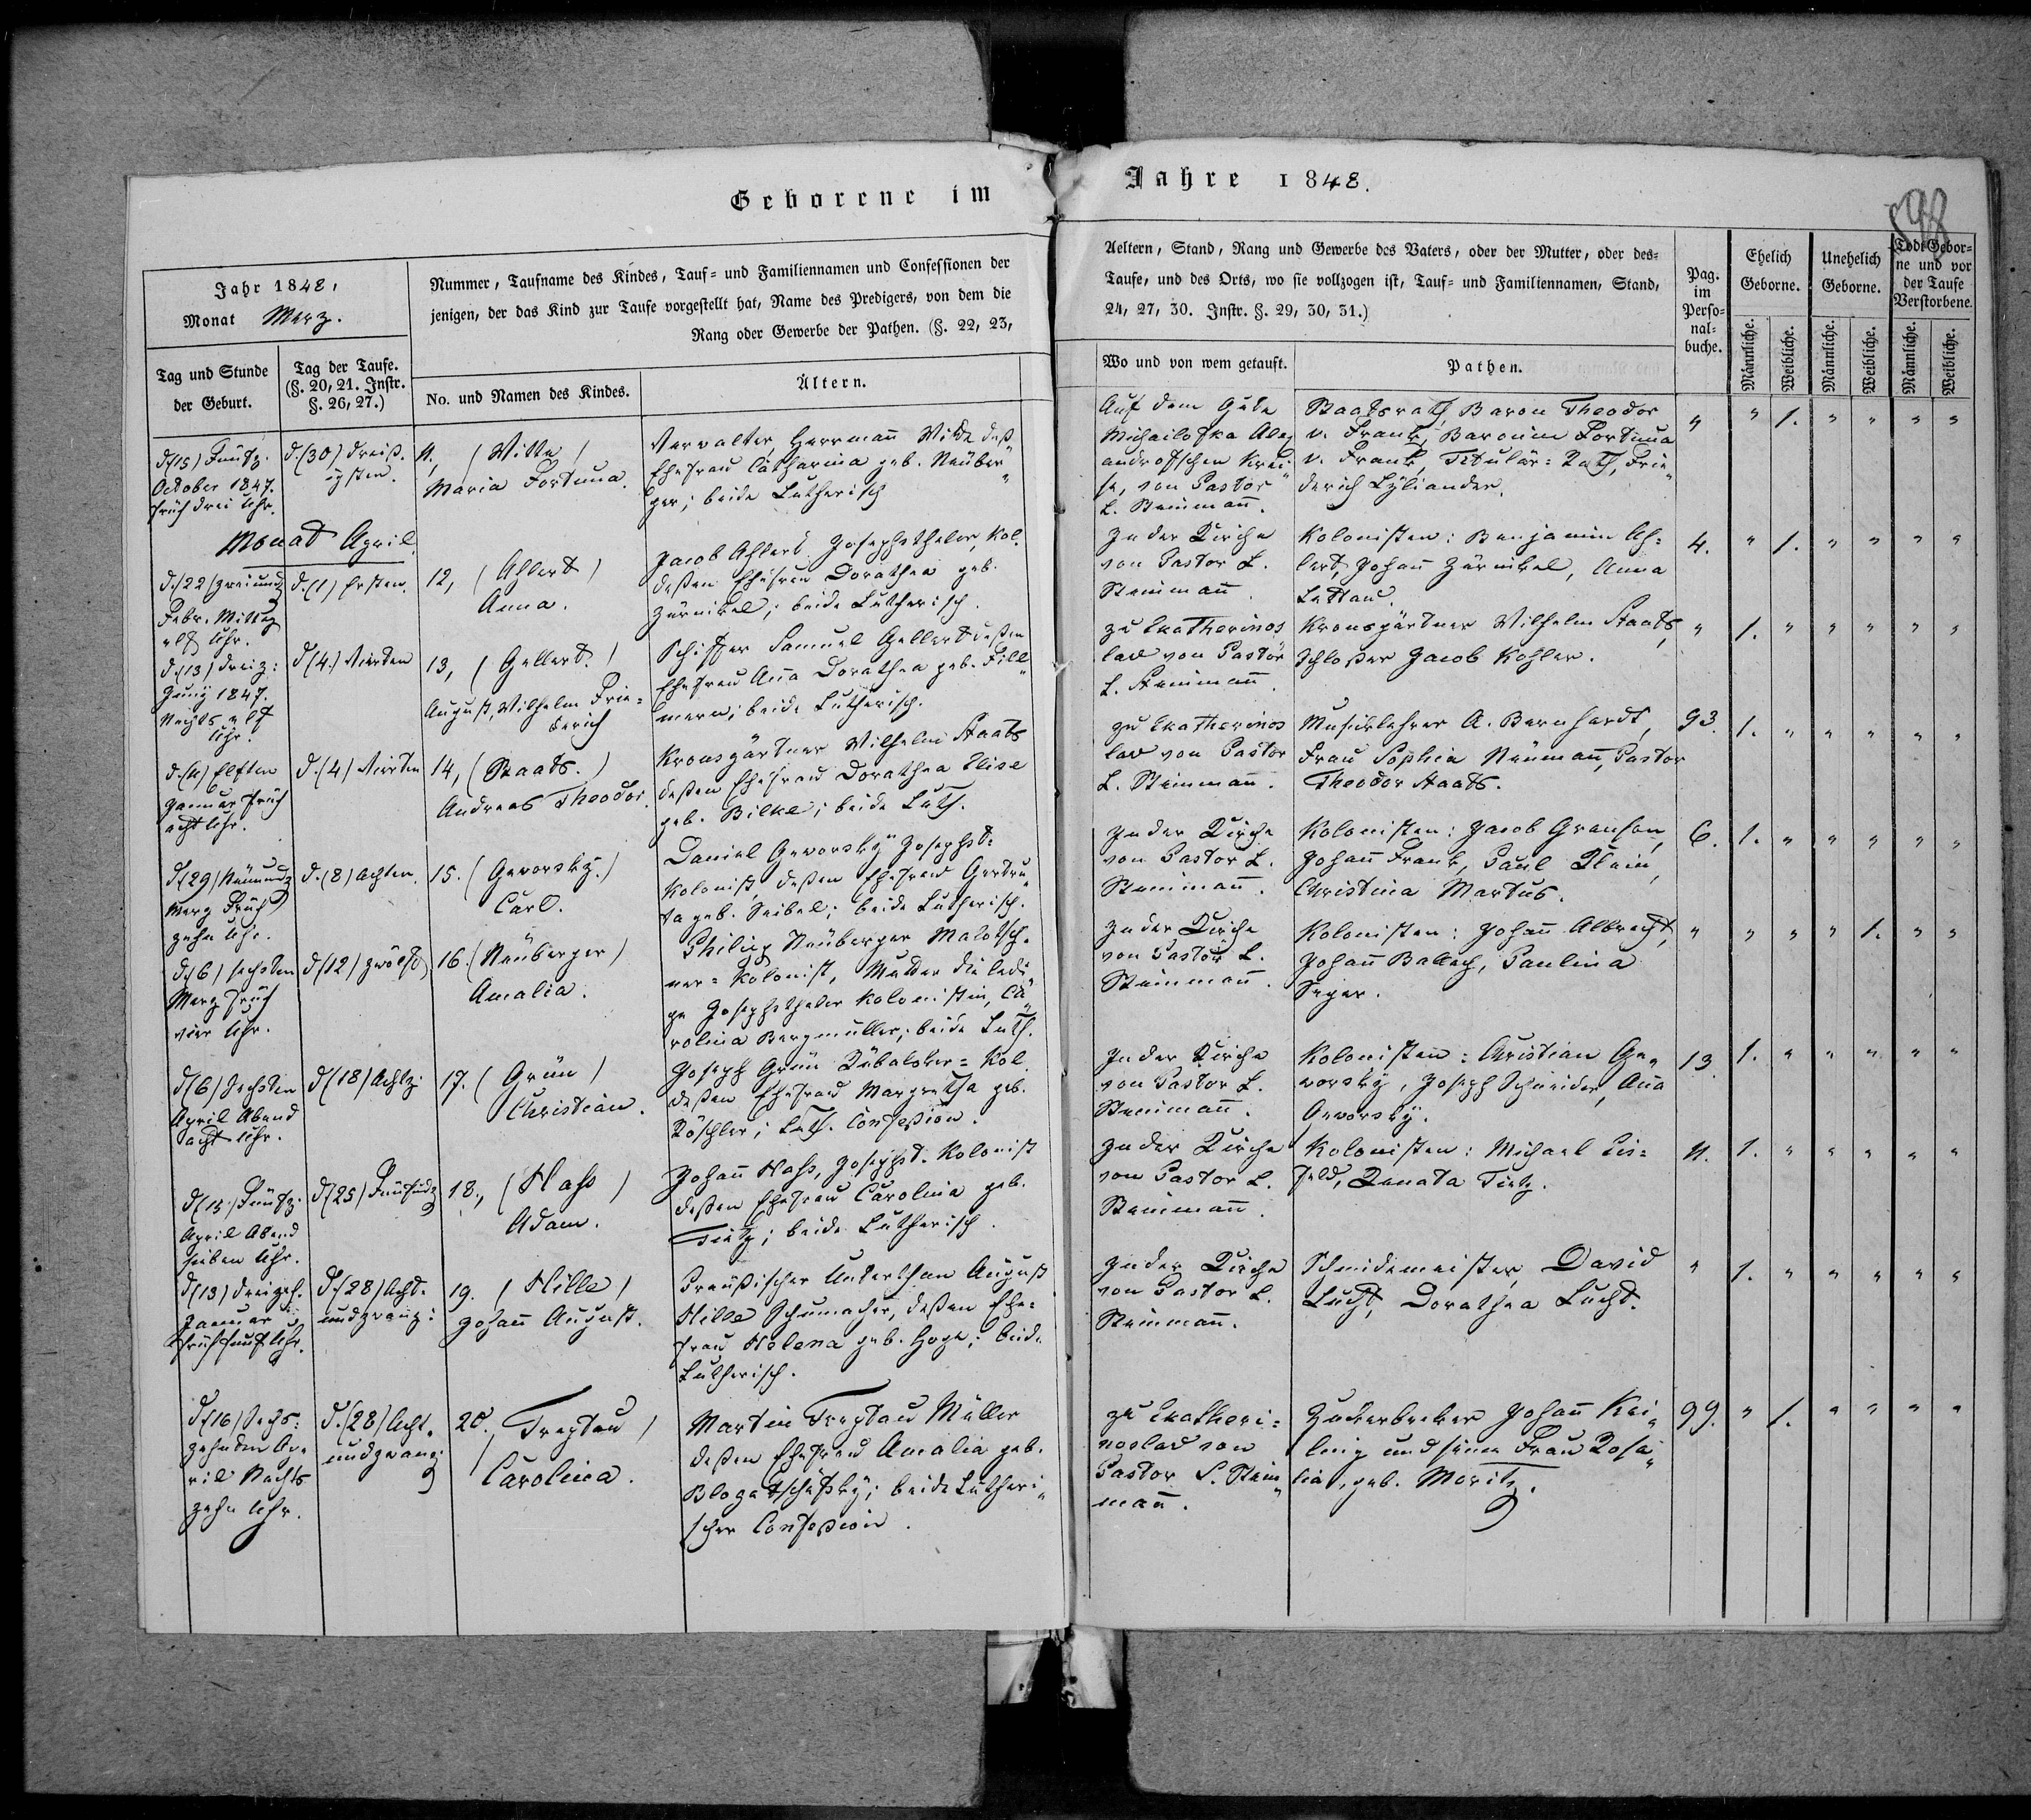 Geborene im Jahre 1848.
598
Jahr 1848,
Monat Merz.
Nummer, Taufname des Kindes, Tauf- und Familiennamen und Confessionen der
jenigen, der das Kind zur Taufe vorgestellt hat, Name des Predigers, von dem die
Rang oder Gewerbe der Pathen. (§. 22, 23,
Tag und Stunde
der Geburt.
Tag der Taufe.
(§. 20, 21. Instr.
§. 26, 27.)
No. und Namen des Kindes.
Ältern.
Aeltern, Stand, Rang und Gewerbe des Vaters, oder der Mutter, oder des-
Taufe, und des Orts, wo sie vollzogen ist, Tauf- und Familiennamen, Stand,
24, 27, 30. Instr. §. 29, 30, 31.)
Wo und von wem getauft.
Pathen.
Pag.
im
Perso-
nal-
buche.
Ehelich
Geborne.
Unehelich
Geborne.
Todt Gebor-
ne und vor
der Taufe
Verstorbene.
Männliche.
Weibliche.
Männliche.
Weibliche.
Männliche.
Weibliche.
d. (15) Fünfz.
October 1847.
früh drei Uhr.
d. (30) dreiß-
igsten.
11. (Witte)
Maria Fortuna.
Verwalter Herrmañ Witte deß
Ehefrau Catharina geb. Neuber„
ger; beide Lutherisch
Auf dem Gute
Michailofka Alex
androffschen Krei„
se, von Pastor
L. Steinmañ.
Staatsrath Baron Theodor
v. Frank, Baronin Fortuna
v. Frank, Titulär-Rath, Frie„
derich Lyliander.
" " 1. " " " "
Monat April
d. (22) zweiundz
Febr. Mittag
elf Uhr.
d. (1) Ersten.
12, (Ahlert)
Anna.
Jacob Ahlert Josephsthaler, Kol.
deßen Ehefrau Dorathea geb.
Zürnikel; beide Lutherisch.
In der Kirche
von Pastor L.
Steinmañ.
Kolonisten: Benjamin Ah-
lert, Johañ Zürnikel, Anna
Lettau.
4. " 1. " " " "
d. (13) dreiz:
Juny 1847.
Nachts elf
Uhr.
d (4.) Vierten
13, (Gellert.)
August, Wilhelm Frie-
derich
Schiffer Samuel Gellert deßen
Ehefrau Aña Dorathea geb. Fill„
mern; beide Lutherisch.
zu Ekatherinos
lav von Pastor
L. Steinmañ.
Kronsgärtner Wilhelm Staats,
Schloßer Jacob Kohler.
" 1. " " " " "
d. (11) Elften
Januar früh
acht Uhr.
d. (4) Vierten
14, (Staats.)
Andreas Theodor.
Kronsgärtner Wilhelm Staats
deßen Ehefrau Dorathea Elise
geb. Bilke; beide Luth.
zu Ekatherinos
lav von Pastor
L. Steinmañ.
Musiklehrer A. Bernhardt,
Frau Sophia Neumañ, Pastor
Theodor Staats.
93. 1. " " " " "
d. (29) Neunundz
Merz Früh
zehn Uhr.
d. (8) Achten.
15. (Geworsky.)
Carl.
Daniel Geworsky Josephst-
Kolonist, deßen Ehefrau Gertru„
ta geb. Seibel; beide Lutherisch.
In der Kirche
von Pastor L.
Steinmañ.
Kolonisten: Jacob Granson,
Johañ Frank, Paul Klein,
Christina Martus.
6. 1. " " " " "
d. (6) sechsten
Merz früh
vier Uhr.
d (12) zwölft
16. (Neuberger)
Amalia.
Philipp Neuberger Malotsch-
ner-Kolonist, Mutter die ledi„
ge Josephsthaler Kolonistin, Ca„
rolina Bergmüller; beide Luth.
In der Kirche
von Pastor L.
Steinmañ.
Kolonisten: Johañ Albrecht,
Johañ Ballach, Paulina
Seger.
" " " " 1. " "
d (6) Sechsten
April Abend
acht Uhr.
d (18) Achtz:
17. (Grün)
Christian.
Joseph Grün Ribalsker-Kol.
deßen Ehefrau Margretha geb.
Röschler; Luth. Confeßion.
In der Kirche
von Pastor L.
Steinmañ.
Kolonisten: Christian Ge„
worsky, Joseph Schneider, Aña
Geworsky.
13. 1. " " " " "
d (15.) Fünfz.
April Abend
sieben Uhr.
d (25) Fünfundz
18., (Hass)
Adam.
Johañ Hass, Josephst. Kolonist
deßen Ehefrau Carolina geb.
Tietz; beide Lutherisch.
In der Kirche
von Pastor L.
Steinmañ.
Kolonisten: Michael Eis-
feld, Renata Tietz.
11. 1. " " " " "
d (13) dreizeh.
Januar
früh fünf Uhr.
d. (28) Acht-
undzwanz:
19. (Hille)
Johañ August.
Preußischer Unterthan August
Hille Schumacher, deßen Ehe-
frau Helena geb. Hoge; beide
Lutherisch.
In der Kirche
von Pastor L.
Steinmañ.
Schmidemeister David
Lucht, Dorathea Lucht.
" 1. " " " " "
d (16) Sechs-
zehnten Ap-
ril Nachts
zehn Uhr.
d. (28) Acht-
undzwanz
20. (Treptau)
Carolina.
Martin Treptau Müller
deßen Ehefrau Amalia geb.
Blogatschefsky; beide Lutheri„
scher Confeßion.
zu Ekatheri-
noslav von
Pastor L. Stein„
mañ.
Zukerbecker Johañ Kei„
ling und seine Frau Rosa„
lia, geb. Moritz.
99. " 1. " " " "